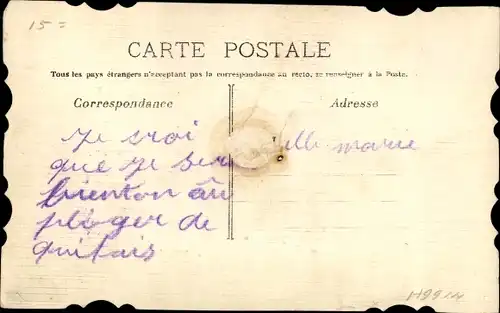 15=
CARTE POSTALE
Tous les pays étrangers n'acceptant pas la correspondance au recto, se renseigner à la Poste.
Correspondance
Adresse
Je croi
que je ser
bienton au
plager de
quitais
elle marie
H9914